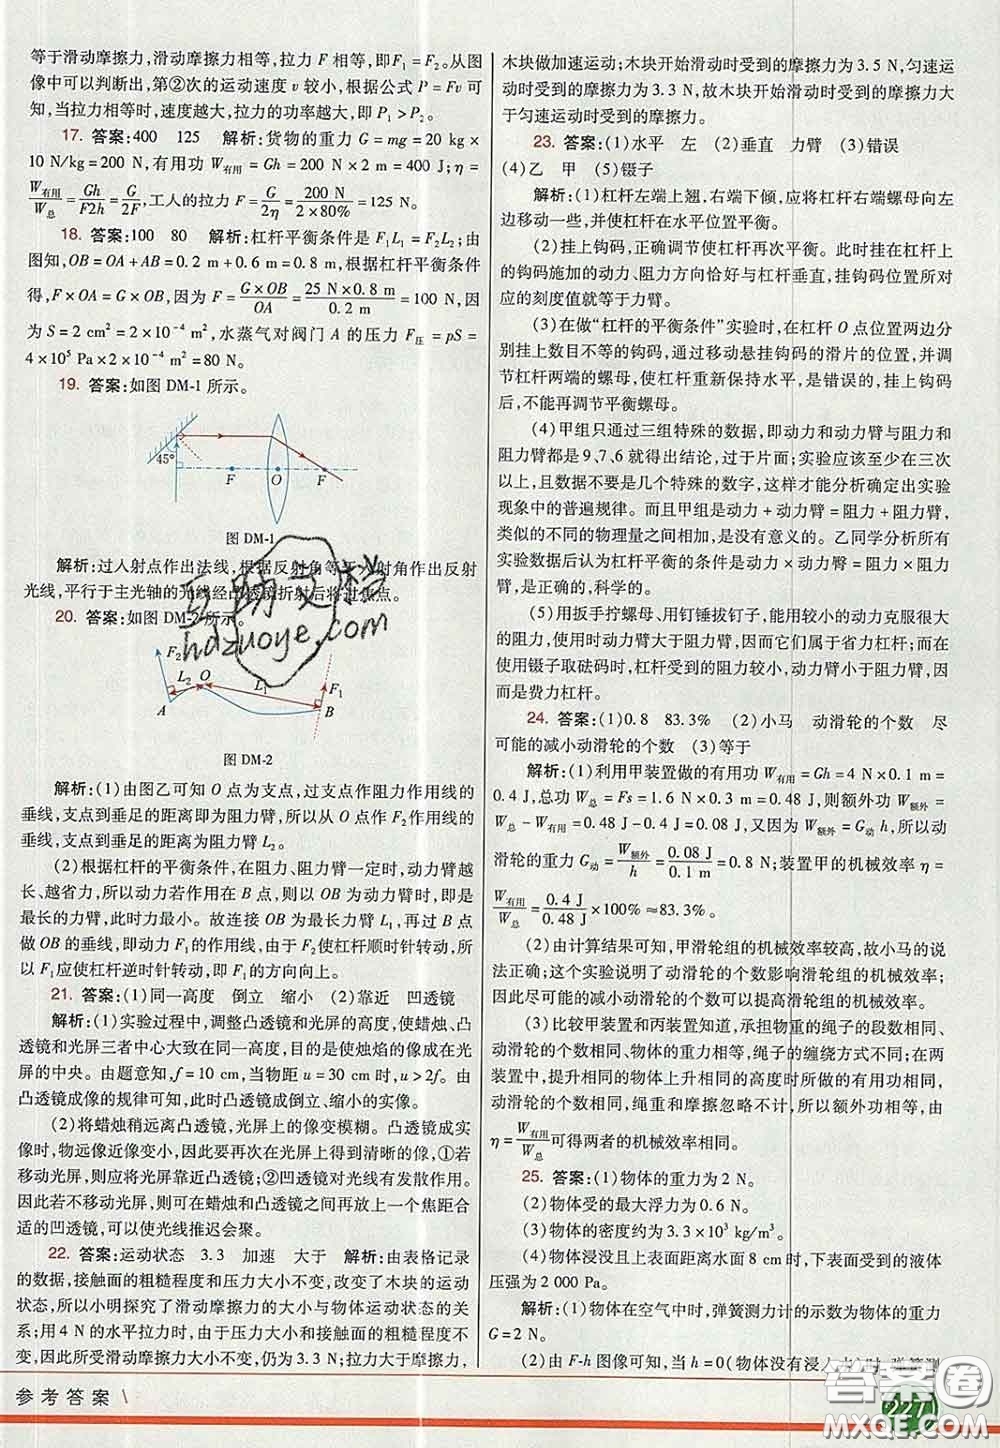 等于滑动摩擦力,滑动摩擦力相等,拉力 F 相等,即F₁=F₂。从图
像中可以判断出,第②次的运动速度 v 较小,根据公式 P=Fv 可
知,当拉力相等时,速度越大,拉力的功率越大,即 P₁>P₂。
17. 答案:400 125 解析:货物的重力 G=mg=20 kg×
10 N/kg=200 N,有用功 W有用=Gh=200 N×2 m=400 J;η=
W有用/W总=Gh/F2h=G/2F,工人的拉力 F=G/2η=200 N/2×80%=125 N。
18. 答案:100 80 解析:杠杆平衡条件是 F₁L₁=F₂L₂;由
图知,OB=OA+AB=0.2 m+0.6 m=0.8 m,根据杠杆平衡条件
得,F×OA=G×OB,因为 F=G×OB/OA=25 N×0.8 m/0.2 m=100 N,因
为 S=2 cm²=2×10⁻⁴ m²,水蒸气对阀门 A 的压力 F压=pS=
4×10⁵ Pa×2×10⁻⁴ m²=80 N。
19. 答案:如图 DM-1 所示。
45° F O F
图 DM-1
解析:过入射点作出法线,根据反射角等于入射角作出反射
光线,平行于主光轴的光线经凸透镜折射后将过焦点。
20. 答案:如图 DM-2 所示。
F₂ L₂ O L₁ F₁ A B
图 DM-2
解析:(1)由图乙可知 O 点为支点,过支点作阻力作用线的
垂线,支点到垂足的距离即为阻力臂,所以从 O 点作 F₂作用线的
垂线,支点到垂足的距离为阻力臂 L₂。
(2)根据杠杆的平衡条件,在阻力、阻力臂一定时,动力臂越
长、越省力,所以动力若作用在 B 点,则以 OB 为动力臂时,即是
最长的力臂,此时力最小。故连接 OB 为最长力臂 L₁,再过 B 点
做 OB 的垂线,即动力 F₁的作用线,由于 F₂使杠杆顺时针转动,所
以 F₁应使杠杆逆时针转动,即 F₁的方向向上。
21. 答案:(1)同一高度 倒立 缩小 (2)靠近 凹透镜
解析:(1)实验过程中,调整凸透镜和光屏的高度,使蜡烛、凸
透镜和光屏三者中心大致在同一高度,目的是使烛焰的像成在光
屏的中央。由题意知,f=10 cm,当物距 u=30 cm 时,u>2f。由
凸透镜成像的规律可知,此时凸透镜成倒立、缩小的实像。
(2)将蜡烛稍远离凸透镜,光屏上的像变模糊。凸透镜成实
像时,物远像近像变小,因此要再次得到清晰的像,①若
移动光屏,应将光屏靠近凸透镜;②凹透镜对光线有发散作用。
若不移动光屏,可以在蜡烛和凸透镜之间放上一个焦距合
适的凹透镜,可以使光线推迟会聚。
22. 答案:运动状态 3.3 加速 大于 解析:由表格记录
的数据,接触面的粗糙程度和压力大小不变,改变了木块的运动
状态,所以小明探究了滑动摩擦力的大小与物体运动状态的关
系;用 4 N 的水平拉力时,由于压力大小和接触面的粗糙程度不
变,因此所受滑动摩擦力大小不变,仍为 3.3 N;拉力大于摩擦力,
木块做加速运动;木块开始滑动时受到的摩擦力为 3.5 N,匀速运
动时受到的摩擦力为 3.3 N,故木块开始滑动时受到的摩擦力大
于匀速运动时受到的摩擦力。
23. 答案:(1)水平 左 (2)垂直 力臂 (3)错误
(4)乙 甲 (5)镊子
解析:(1)杠杆左端上翘,右端下倾,应将杠杆右端螺母向左
边移动一些,并使杠杆在水平位置平衡。
(2)挂上钩码,正确调节使杠杆再次平衡。此时挂在杠杆上
的钩码施加的动力、阻力方向恰好与杠杆垂直,挂钩码位置所对
应的刻度值就等于力臂。
(3)在做“杠杆的平衡条件”实验时,在杠杆 O 点位置两边分
别挂上数目不等的钩码,通过移动悬挂钩码的滑片的位置,并调
节杠杆两端的螺母,使杠杆重新保持水平,是错误的,挂上钩码
后,不能再调节平衡螺母。
(4)甲组只通过三组特殊的数据,即动力和动力臂与阻力和
阻力臂都是 9、7、6 就得出结论,过于片面;实验应该至少在三次
以上,且数据不要是几个特殊的数字,这样才能分析确定出实验
现象中的普遍规律。而且甲组是动力+动力臂=阻力+阻力臂,
类似的不同的物理量之间相加,是没有意义的。乙同学分析所有
实验数据后发现杠杆平衡的条件是动力×动力臂=阻力×阻力
臂,是正确的,科学的。
(5)用扳手拧螺母、用钉锤拔钉子,能用较小的动力克服很大
的阻力,使用时动力臂大于阻力臂,因而它们属于省力杠杆;而在
使用镊子取砝码时,杠杆受到的阻力较小,动力臂小于阻力臂,因
而是费力杠杆。
24. 答案:(1)0.8 83.3% (2)小马 动滑轮的个数 尽
可能的减小动滑轮的个数 (3)等于
解析:(1)利用甲装置做的有用功 W有用=Gh=4 N×0.1 m=
0.4 J,总功 W总=Fs=1.6 N×0.3 m=0.48 J,则额外功 W额外=
W总-W有用=0.48 J-0.4 J=0.08 J,又因为 W额外=G动 h,所以动
滑轮的重力 G动=W额外/h=0.08 J/0.1 m=0.8 N;装置甲的机械效率 η=
W有用/W总=0.4 J/0.48 J×100%≈83.3%。
(2)由计算结果可知,甲滑轮组的机械效率较高,故小马的说
法正确;这个实验揭示了动滑轮的个数影响滑轮组的机械效率;
因此尽可能的减小动滑轮的个数可以提高滑轮组的机械效率。
(3)比较甲装置和丙装置知道,承担物重的绳子的段数相同、
动滑轮的个数相同、物体的重力相等,绳子的缠绕方式不同;在两
装置中,提升相同的物体上升相同的高度时所做有用功相同,由
动滑轮个数相同,绳重和摩擦忽略不计,所以额外功相等,由
η=W有用/W总可得两者的机械效率相同。
25. 答案:(1)物体的重力为 2 N。
(2)物体受的最大浮力为 0.6 N。
(3)物体的密度约为 3.3×10³ kg/m³。
(4)物体浸没且上表面距离水面 8 cm 时,下表面受到的液体
压强为 2 000 Pa。
解析:(1)物体在空气中时,弹簧测力计的示数为物体的重力
G=2 N。
(2)由 F-h 图像可知,当 h=0(物体没有浸入水)时,弹簧测
参考答案
227
互助文档
hdzuoye.com
答案圈
MXQE.COM